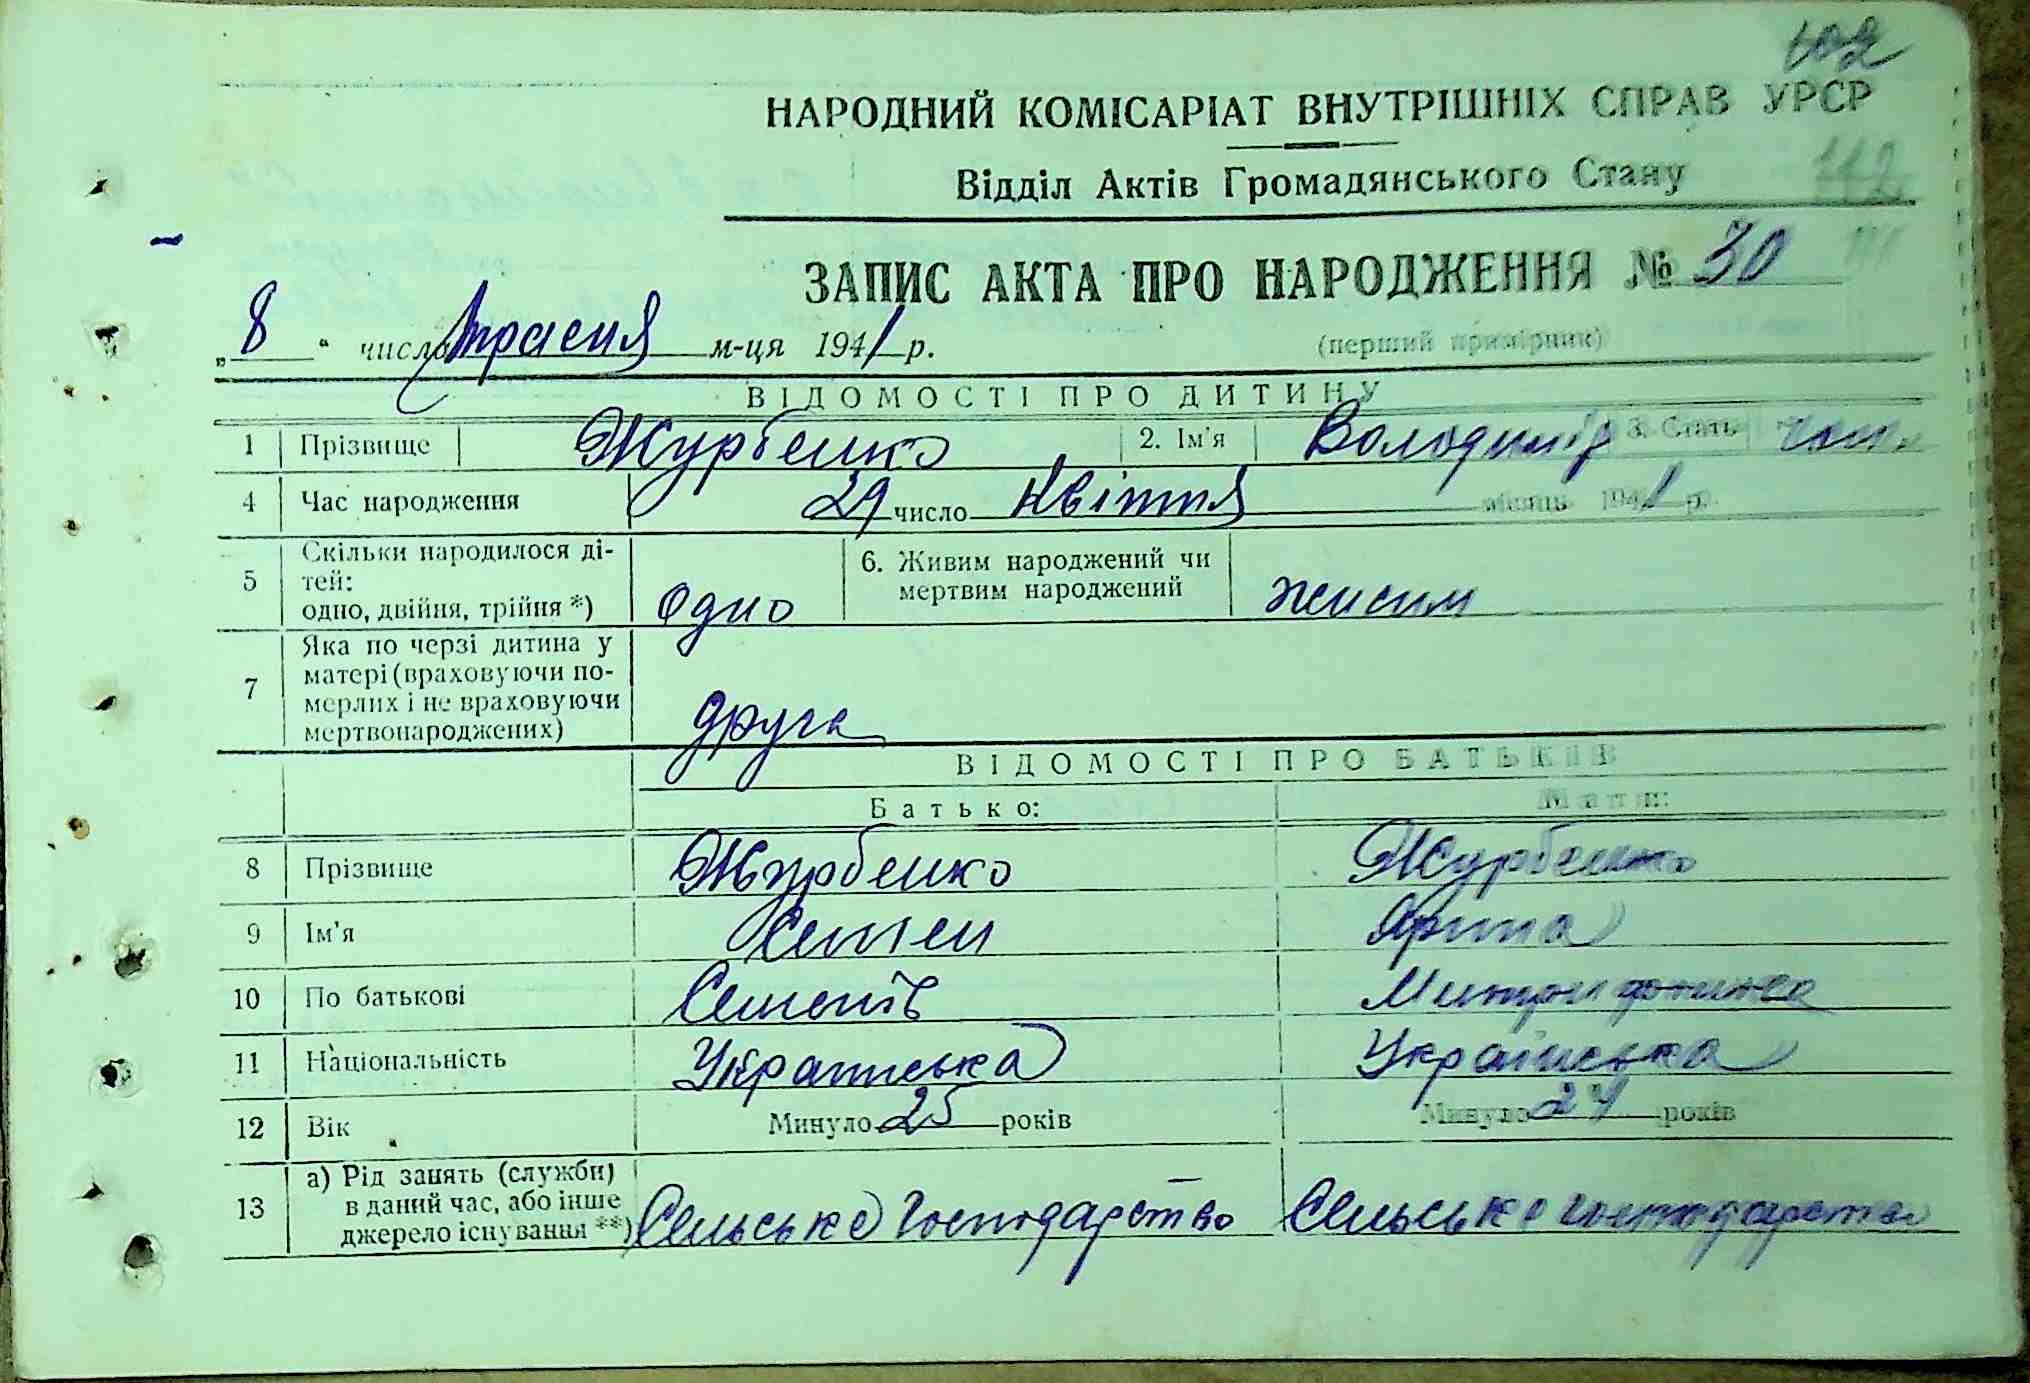 102
НАРОДНИЙ КОМІСАРІАТ ВНУТРІШНІХ СПРАВ УРСР
Відділ Актів Громадянського Стану
112
ЗАПИС АКТА ПРО НАРОДЖЕННЯ № 30
„ 8 “ число травня м-ця 1941 р. (перший примірник)
ВІДОМОСТІ ПРО ДИТИНУ
1 Прізвище Журбенко 2. Ім'я Володимір 3. Стать чол.
4 Час народження 29 число Квіття місяць 1941 р.
5 Скільки народилося ді-
тей:
одно, двійня, трійня *) одно 6. Живим народжений чи
мертвим народжений живим
7 Яка по черзі дитина у
матері (враховуючи по-
мерлих і не враховуючи
мертвонароджених) друга
ВІДОМОСТІ ПРО БАТЬКІВ
Батько: Мати:
8 Прізвище Журбенко Журбенко
9 Ім'я Семен Ярина
10 По батькові Семенів
11 Національність Українська Українська
12 Вік Минуло 25 років Минуло 24 років
13 а) Рід занять (служби)
в даний час, або інше
джерело існування **) Сельське господарство Сельське господарство